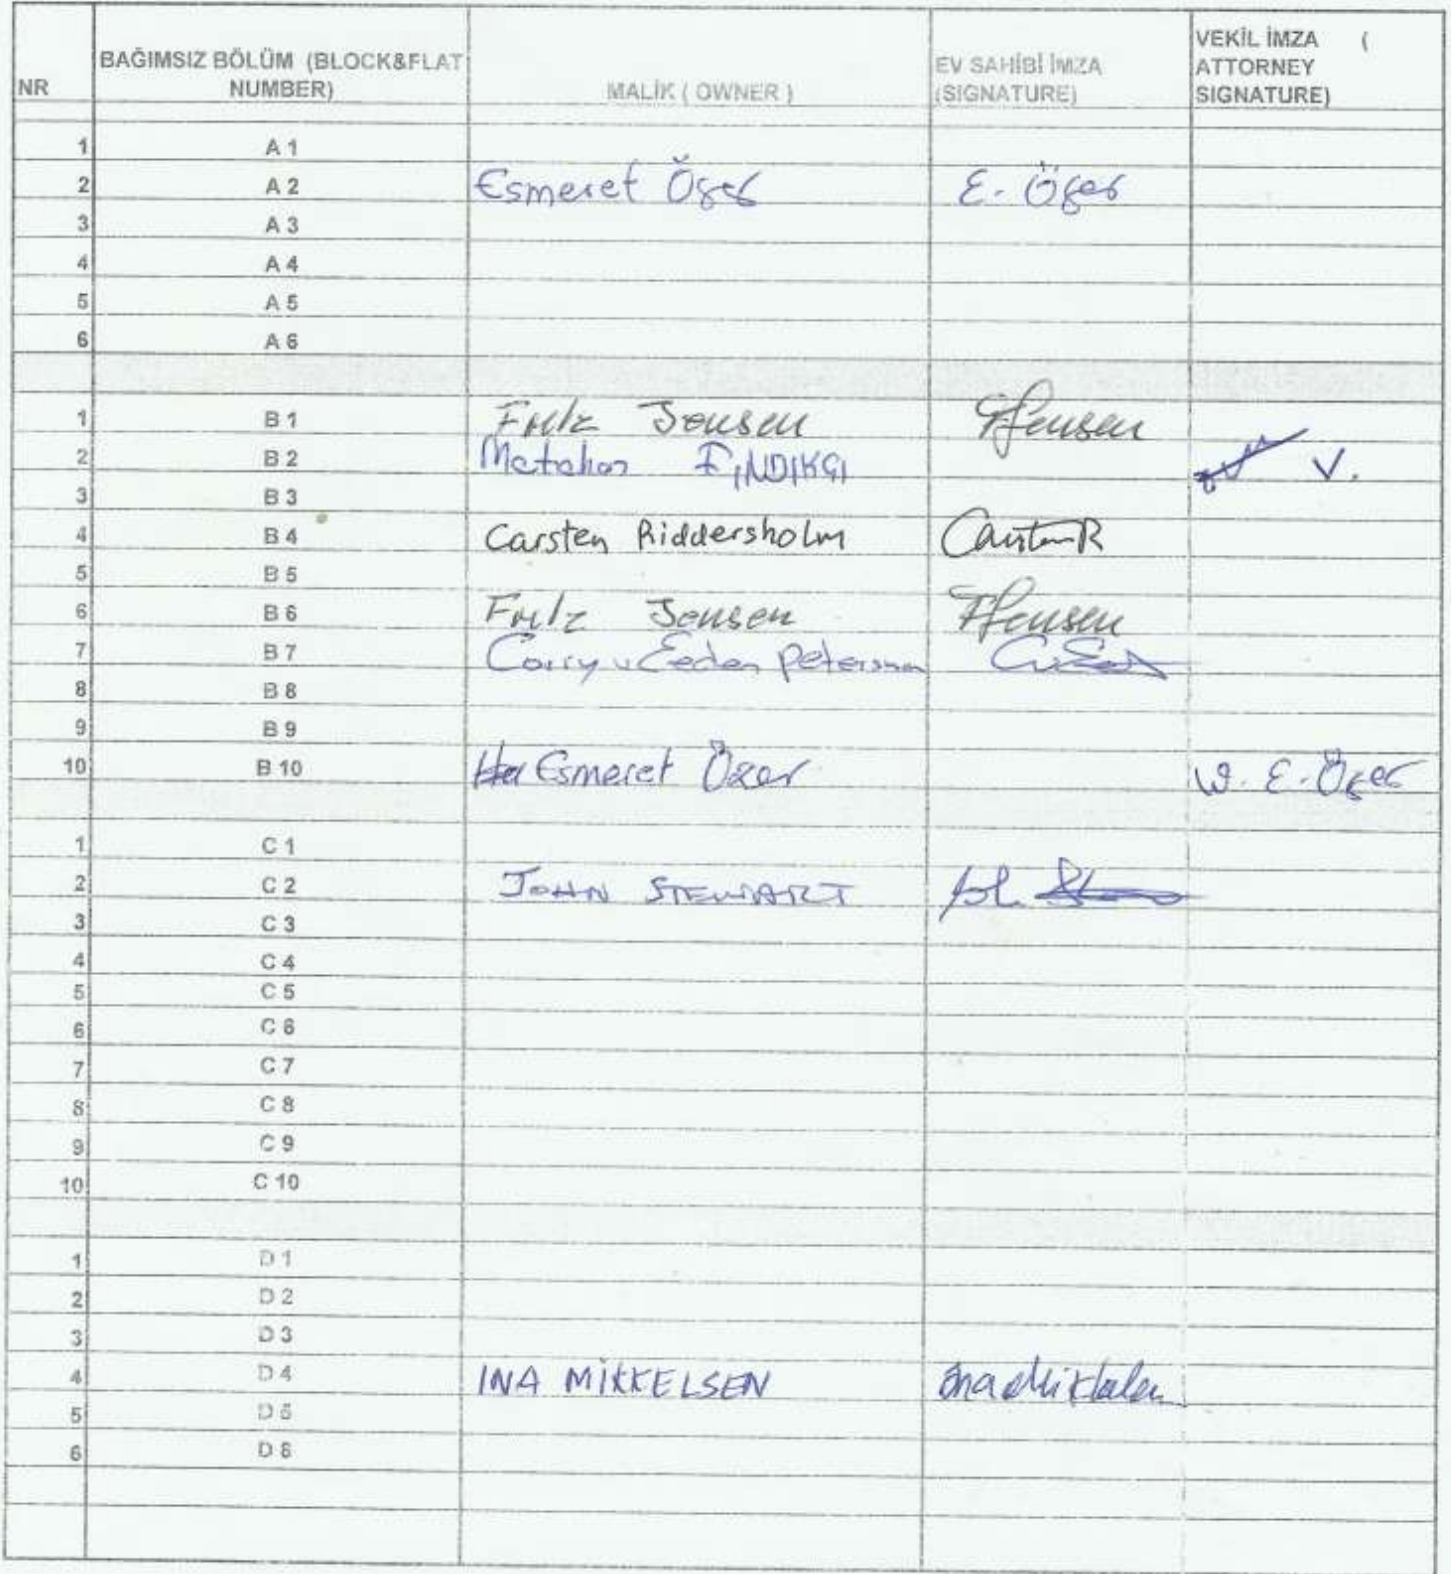 NR BAĞIMSIZ BÖLÜM (BLOCK&FLAT NUMBER) MALİK ( OWNER ) EV SAHİBİ İMZA (SIGNATURE) VEKİL İMZA ( ATTORNEY SIGNATURE)
1 A 1
2 A 2 Esmeret Özer E. Özer
3 A 3
4 A 4
5 A 5
6 A 6
1 B 1 Fritz Jensen FJensen
2 B 2 Metehan FINDIKÇI V.
3 B 3
4 B 4 Carsten Riddersholm Carsten R
5 B 5
6 B 6 Fritz Jensen FJensen
7 B 7 Corry v Eeden Petersman
8 B 8
9 B 9
10 B 10 Esmeret Özer E. Özer
1 C 1
2 C 2 JOHN STEWART
3 C 3
4 C 4
5 C 5
6 C 6
7 C 7
8 C 8
9 C 9
10 C 10
1 D 1
2 D 2
3 D 3
4 D 4 INA MIKKELSEN Ina Mikkelsen
5 D 5
6 D 6